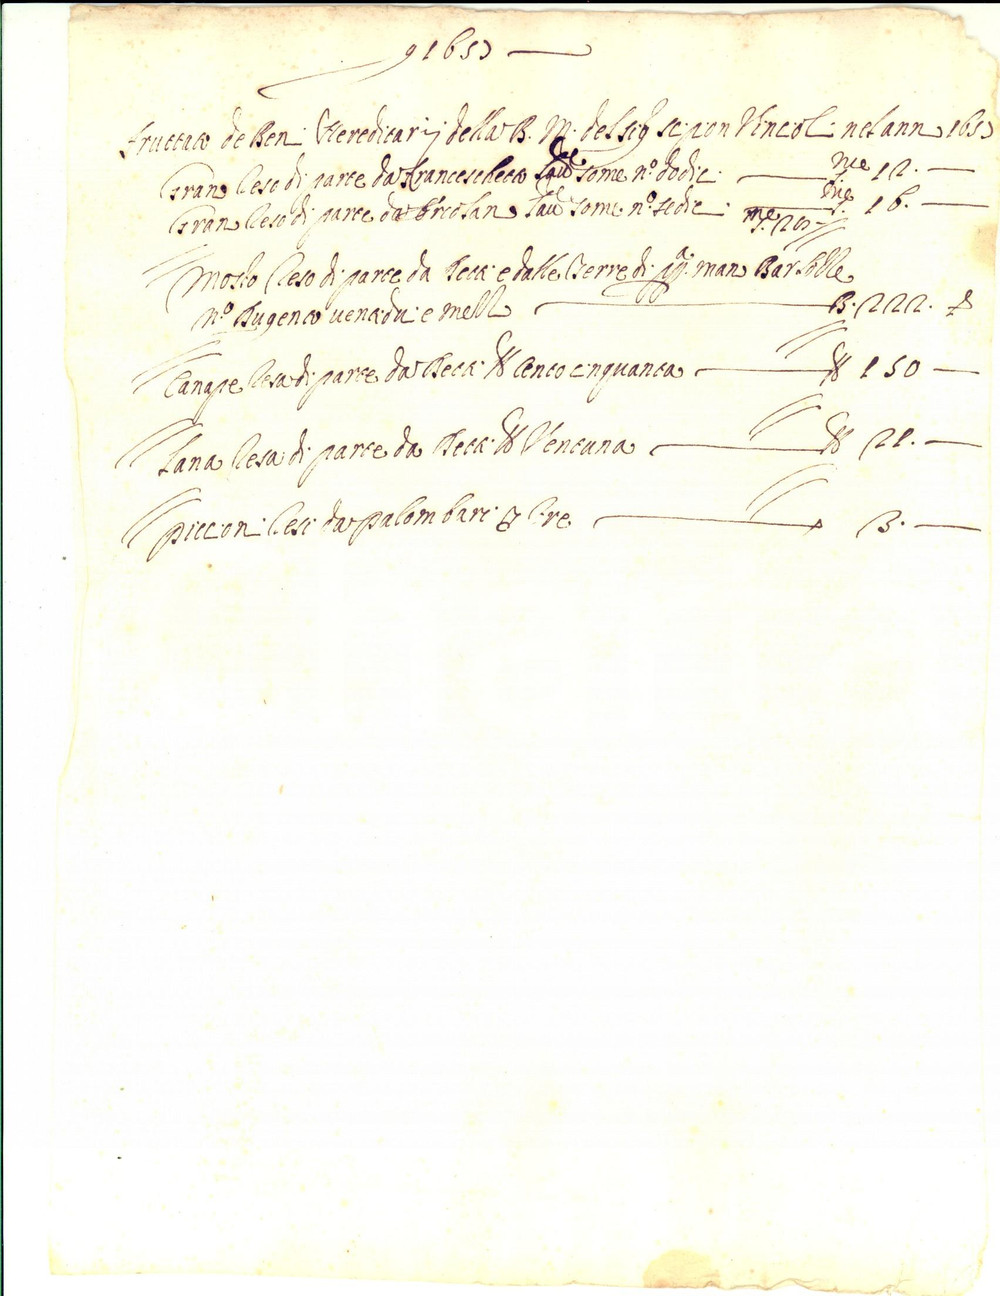 1653
Fruttato de Beni Hereditarij della B. M. del Sig Scipion Vincoli nel ann 1653
Gran reso di parte da Francescheto some nº dodic: 12.
Gran reso di parte da Ercolan some nº sedic: 16.
Mosto reso di parte da e dalle Terre di man Barille
nº Dugento uentidui e mezz B. 222.
Canape resa di parte da cento cinquanta 150
Lana resa di parte da Ventuna 21.
piccioni resi da palombari tre 3.